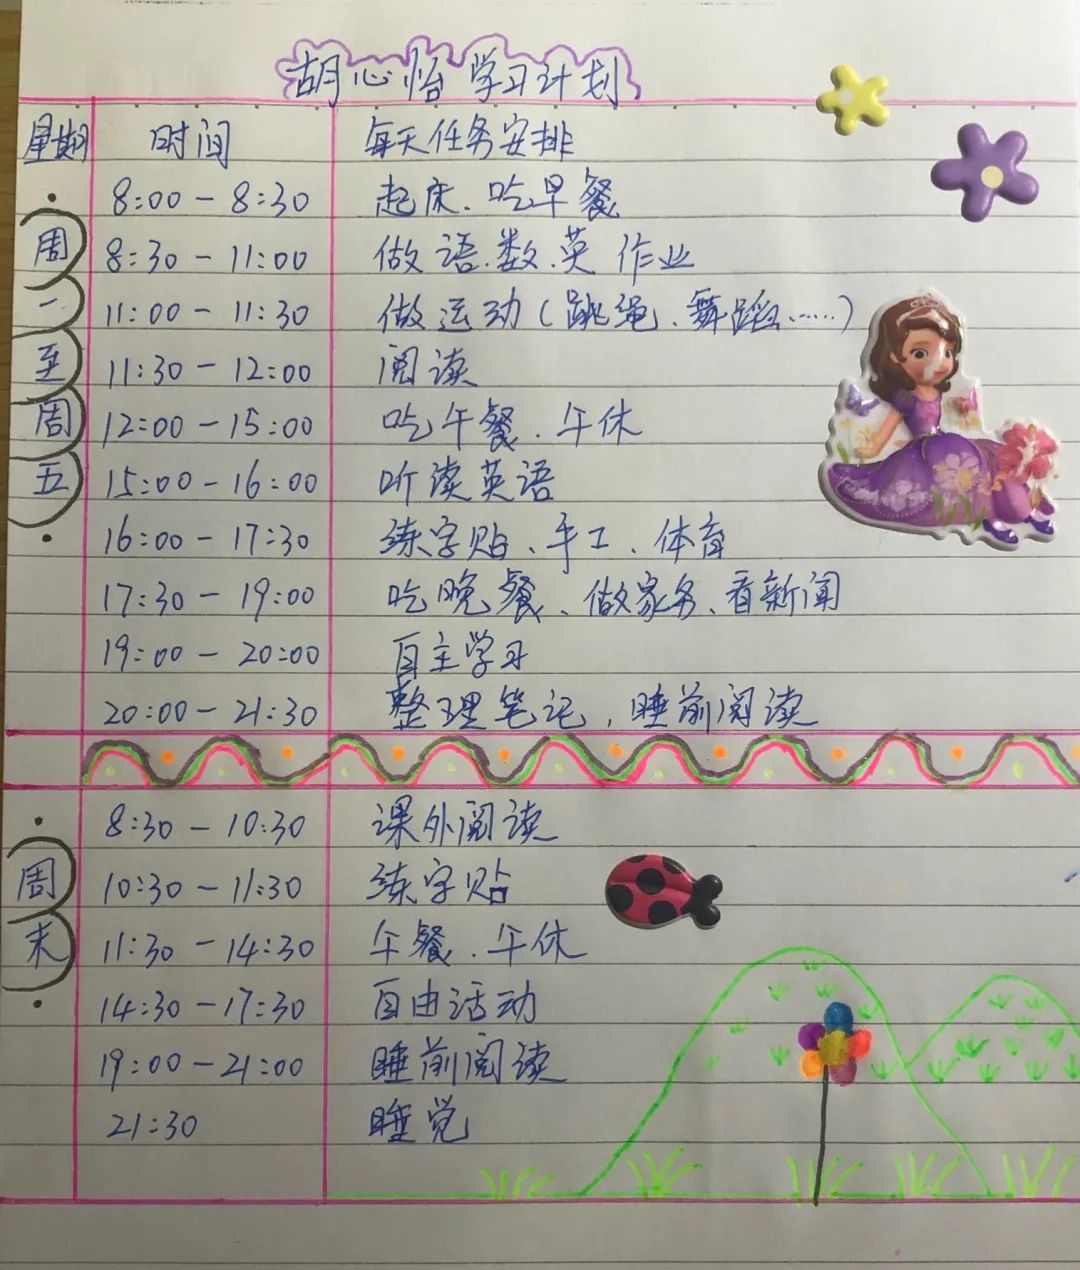 胡心怡学习计划
星期 时间 每天任务安排
周一至周五
8:00-8:30 起床、吃早餐
8:30-11:00 做语、数、英作业
11:00-11:30 做运动(跳绳、舞蹈……)
11:30-12:00 阅读
12:00-15:00 吃午餐、午休
15:00-16:00 听读英语
16:00-17:30 练字贴、手工、体育
17:30-19:00 吃晚餐、做家务、看新闻
19:00-20:00 自主学习
20:00-21:30 整理笔记,睡前阅读
周末
8:30-10:30 课外阅读
10:30-11:30 练字贴
11:30-14:30 午餐、午休
14:30-17:30 自由活动
19:00-21:00 睡前阅读
21:30 睡觉